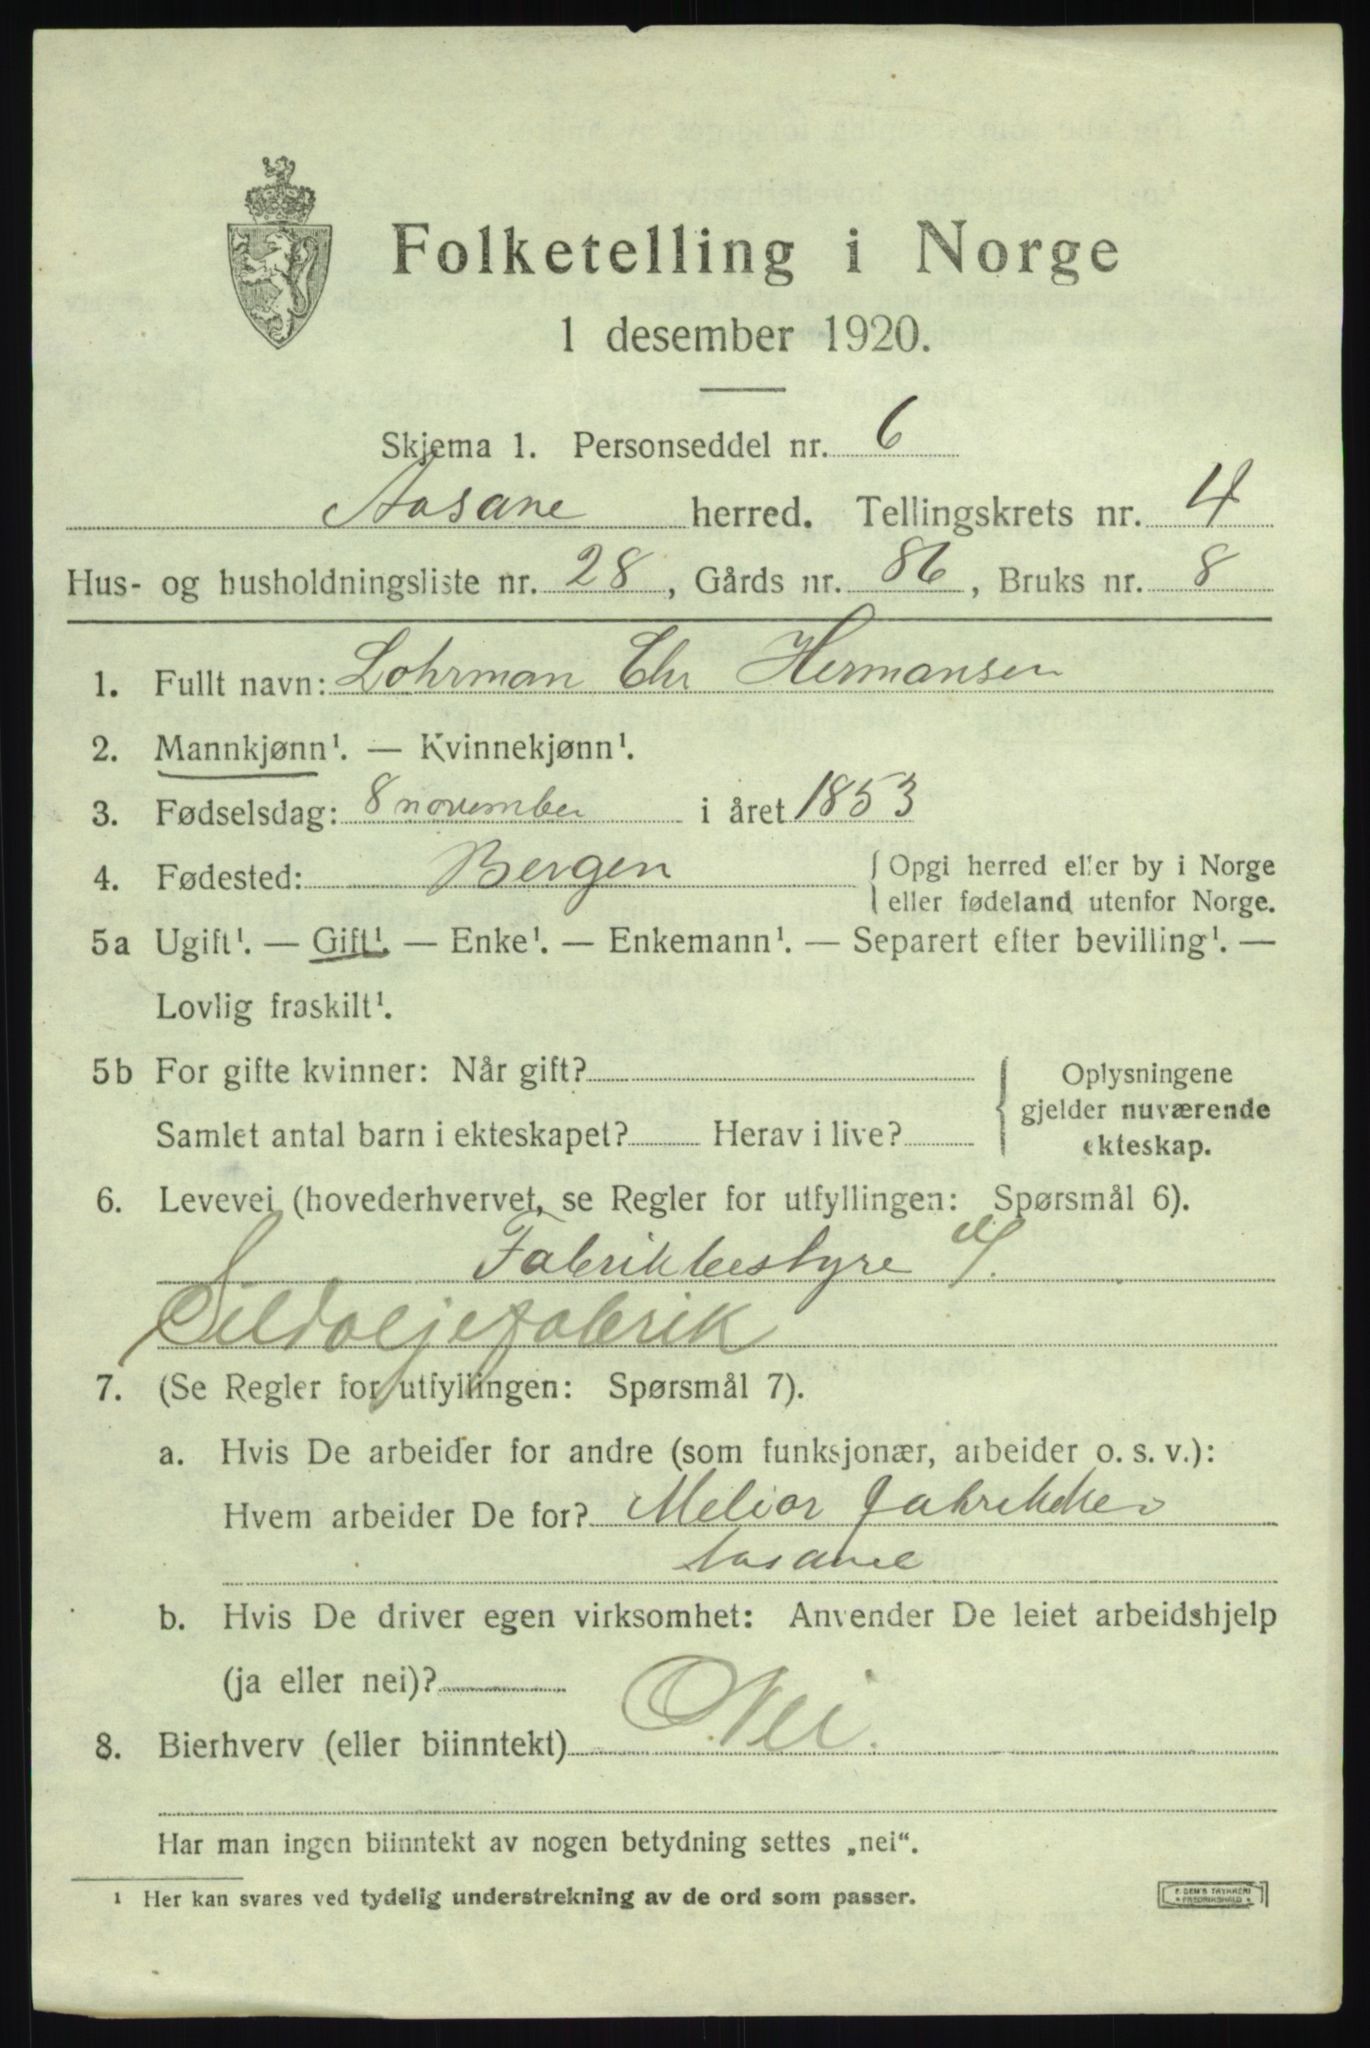 Folketelling i Norge
1 desember 1920.
Skjema 1. Personseddel nr. 6
Aasane herred. Tellingskrets nr. 4
Hus- og husholdningsliste nr. 28, Gårds nr. 86, Bruks nr. 8
1. Fullt navn: Lohrman Chr Hermansen
2. Mannkjønn¹. — Kvinnekjønn¹.
3. Fødselsdag: 8 november i året 1853
4. Fødested: Bergen { Opgi herred eller by i Norge
eller fødeland utenfor Norge.
5a Ugift¹. — Gift¹. — Enke¹. — Enkemann¹. — Separert efter bevilling¹. —
Lovlig fraskilt¹.
5b For gifte kvinner: Når gift?
Samlet antal barn i ekteskapet? Herav i live?
{ Oplysningene
gjelder nuværende
ekteskap.
6. Levevei (hovederhvervet, se Regler for utfyllingen: Spørsmål 6).
Fabrikbestyre
Sildoljefabrik
7. (Se Regler for utfyllingen: Spørsmål 7).
a. Hvis De arbeider for andre (som funksjonær, arbeider o. s. v.):
Hvem arbeider De for? Melior Fabrikker
Aasane
b. Hvis De driver egen virksomhet: Anvender De leiet arbeidshjelp
(ja eller nei)?
8. Bierhverv (eller biinntekt) Nei.
Har man ingen biinntekt av nogen betydning settes „nei“.
¹ Her kan svares ved tydelig understrekning av de ord som passer.
F. DEM'S TRYKKERI
* FREDRIKSHALD *